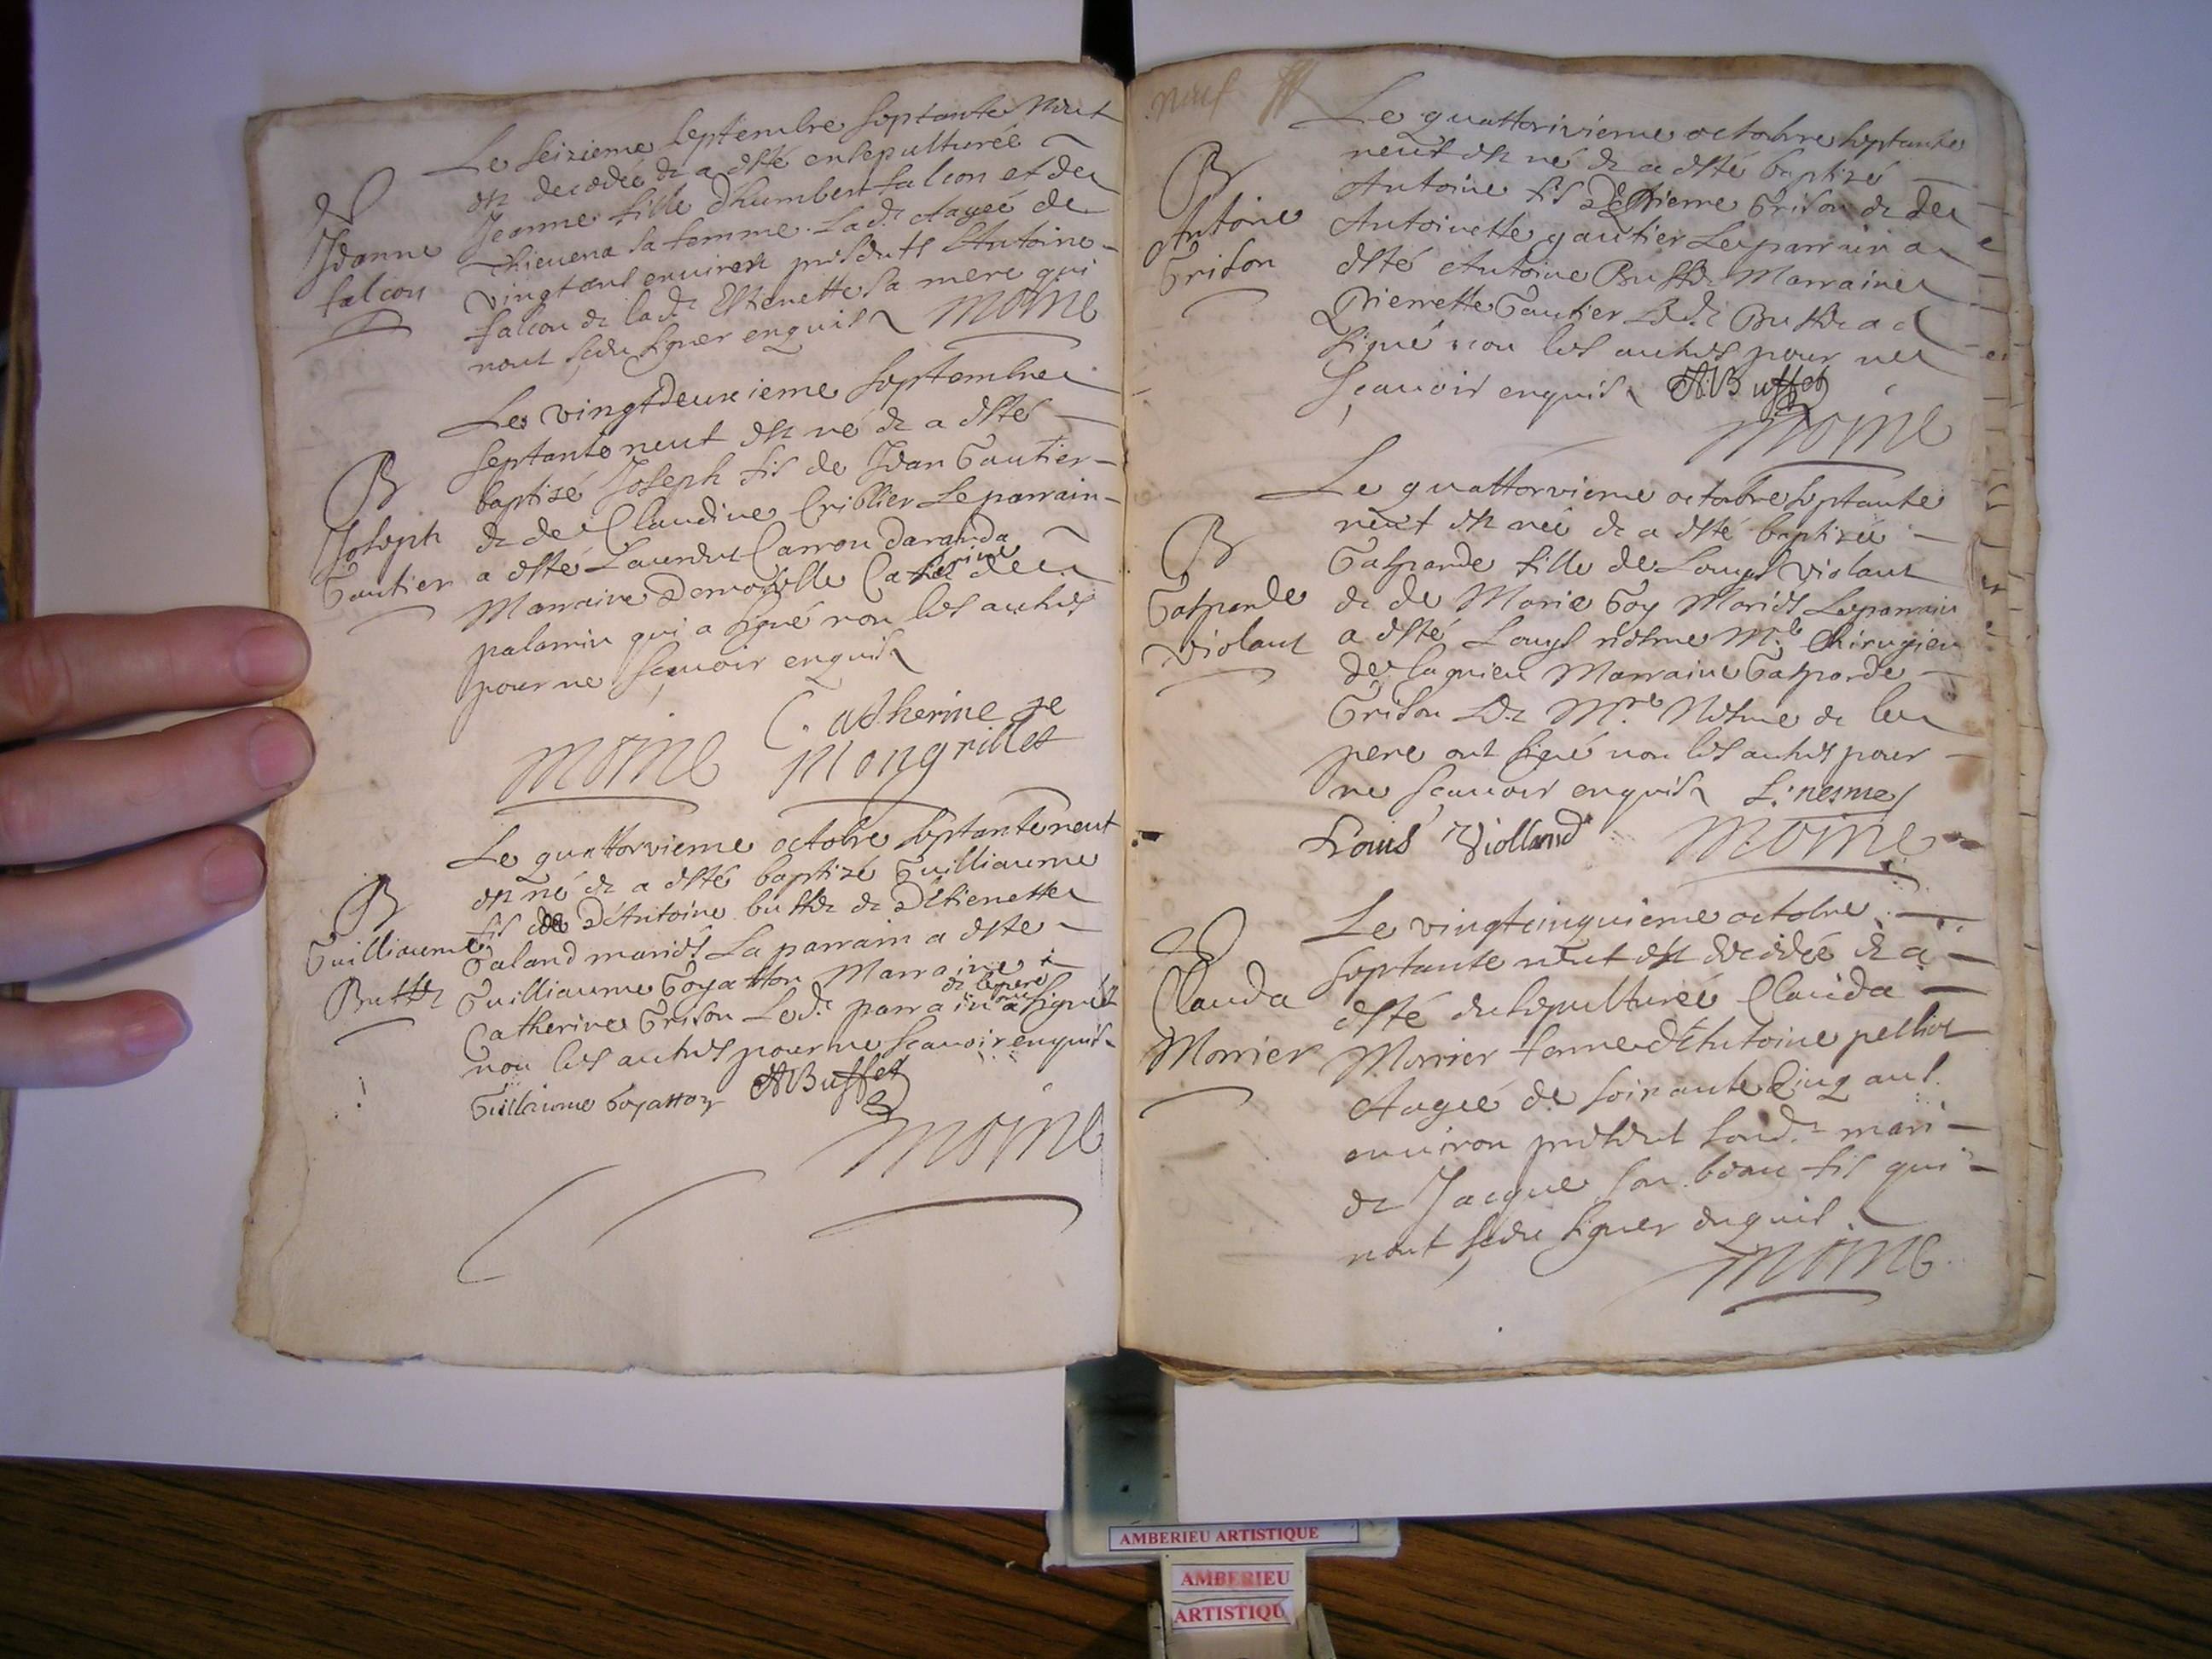 Le seizieme septembre septante neuf
est decedée et a esté ensepulturée
Jeanne fille d'humbert falcon et de
thievena sa femme Lad.e Aagée de
vingt ans environ présents Antoine
falcon et lad.e Estienette sa mere qui
nont sceu signer enquis
Moine
S
Jeanne
falcon
Le vingtdeuxieme septembre
septante neuf est né et a esté
baptizé Joseph fis de Jean Gautier
et de Claudine Criblier Le parrain
a esté Laurent Carron daranda
Marraine Demoiselle Catherine de
palamin qui a signé non les autres
pour ne scavoir enquis
B
Joseph
Gautier
Catherine de
Mongrillet
Moine
Le quattorvieme octobre septante neuf
est né et a esté baptizé Guilliaume
fis de d'Antoine buffet et d'Etienette
Galand mariés La parrain a este
Guilliaume Goyatton Marraine
Catherine Grison Led.t parrain et le pere ont signé
non les autres pour ne scavoir enquis
B
Guilliaume
Buffet
Guilliaume Goyatton ABuffet
Moine
neuf
Le quattorivieme octobre septante
neuf est né et a esté baptizé
Antoine fis d'Ettienne Grison et de
Antoinette gautier Le parrain a
esté Antoine Buffet Marraine
Pierrette Gautier Led.t Buffet a
signé non les autres pour ne
scavoir enquis ABuffet
Moine
B
Antoine
Grison
Le quattorvieme octobre septante
neuf est neé et a esté baptizeé
Gasparde fille de Louys violant
et de Marie Goy Mariés Le parrain
a esté Louys nesme M.e Chirugien
de lagnieu Marraine Gasparde
Grison Led.t M.re Nesme et le
pere ont signé non les autres pour
ne scavoir enquis L. nesme
Louis Violland Moine
B
Gasparde
Violant
Le vingtcinquieme octobre
septante neuf est decedée et a
esté ensepulturée Clauda
Morrier femme d'Antoine pelliot
Aagée de soixante Cinq ans
environ présent sond.t mari
et Jacque son beau fis qui
nont sceu signer enquis
Moine
S
Clauda
Morrier
AMBERIEU ARTISTIQUE
AMBERIEU
ARTISTIQU